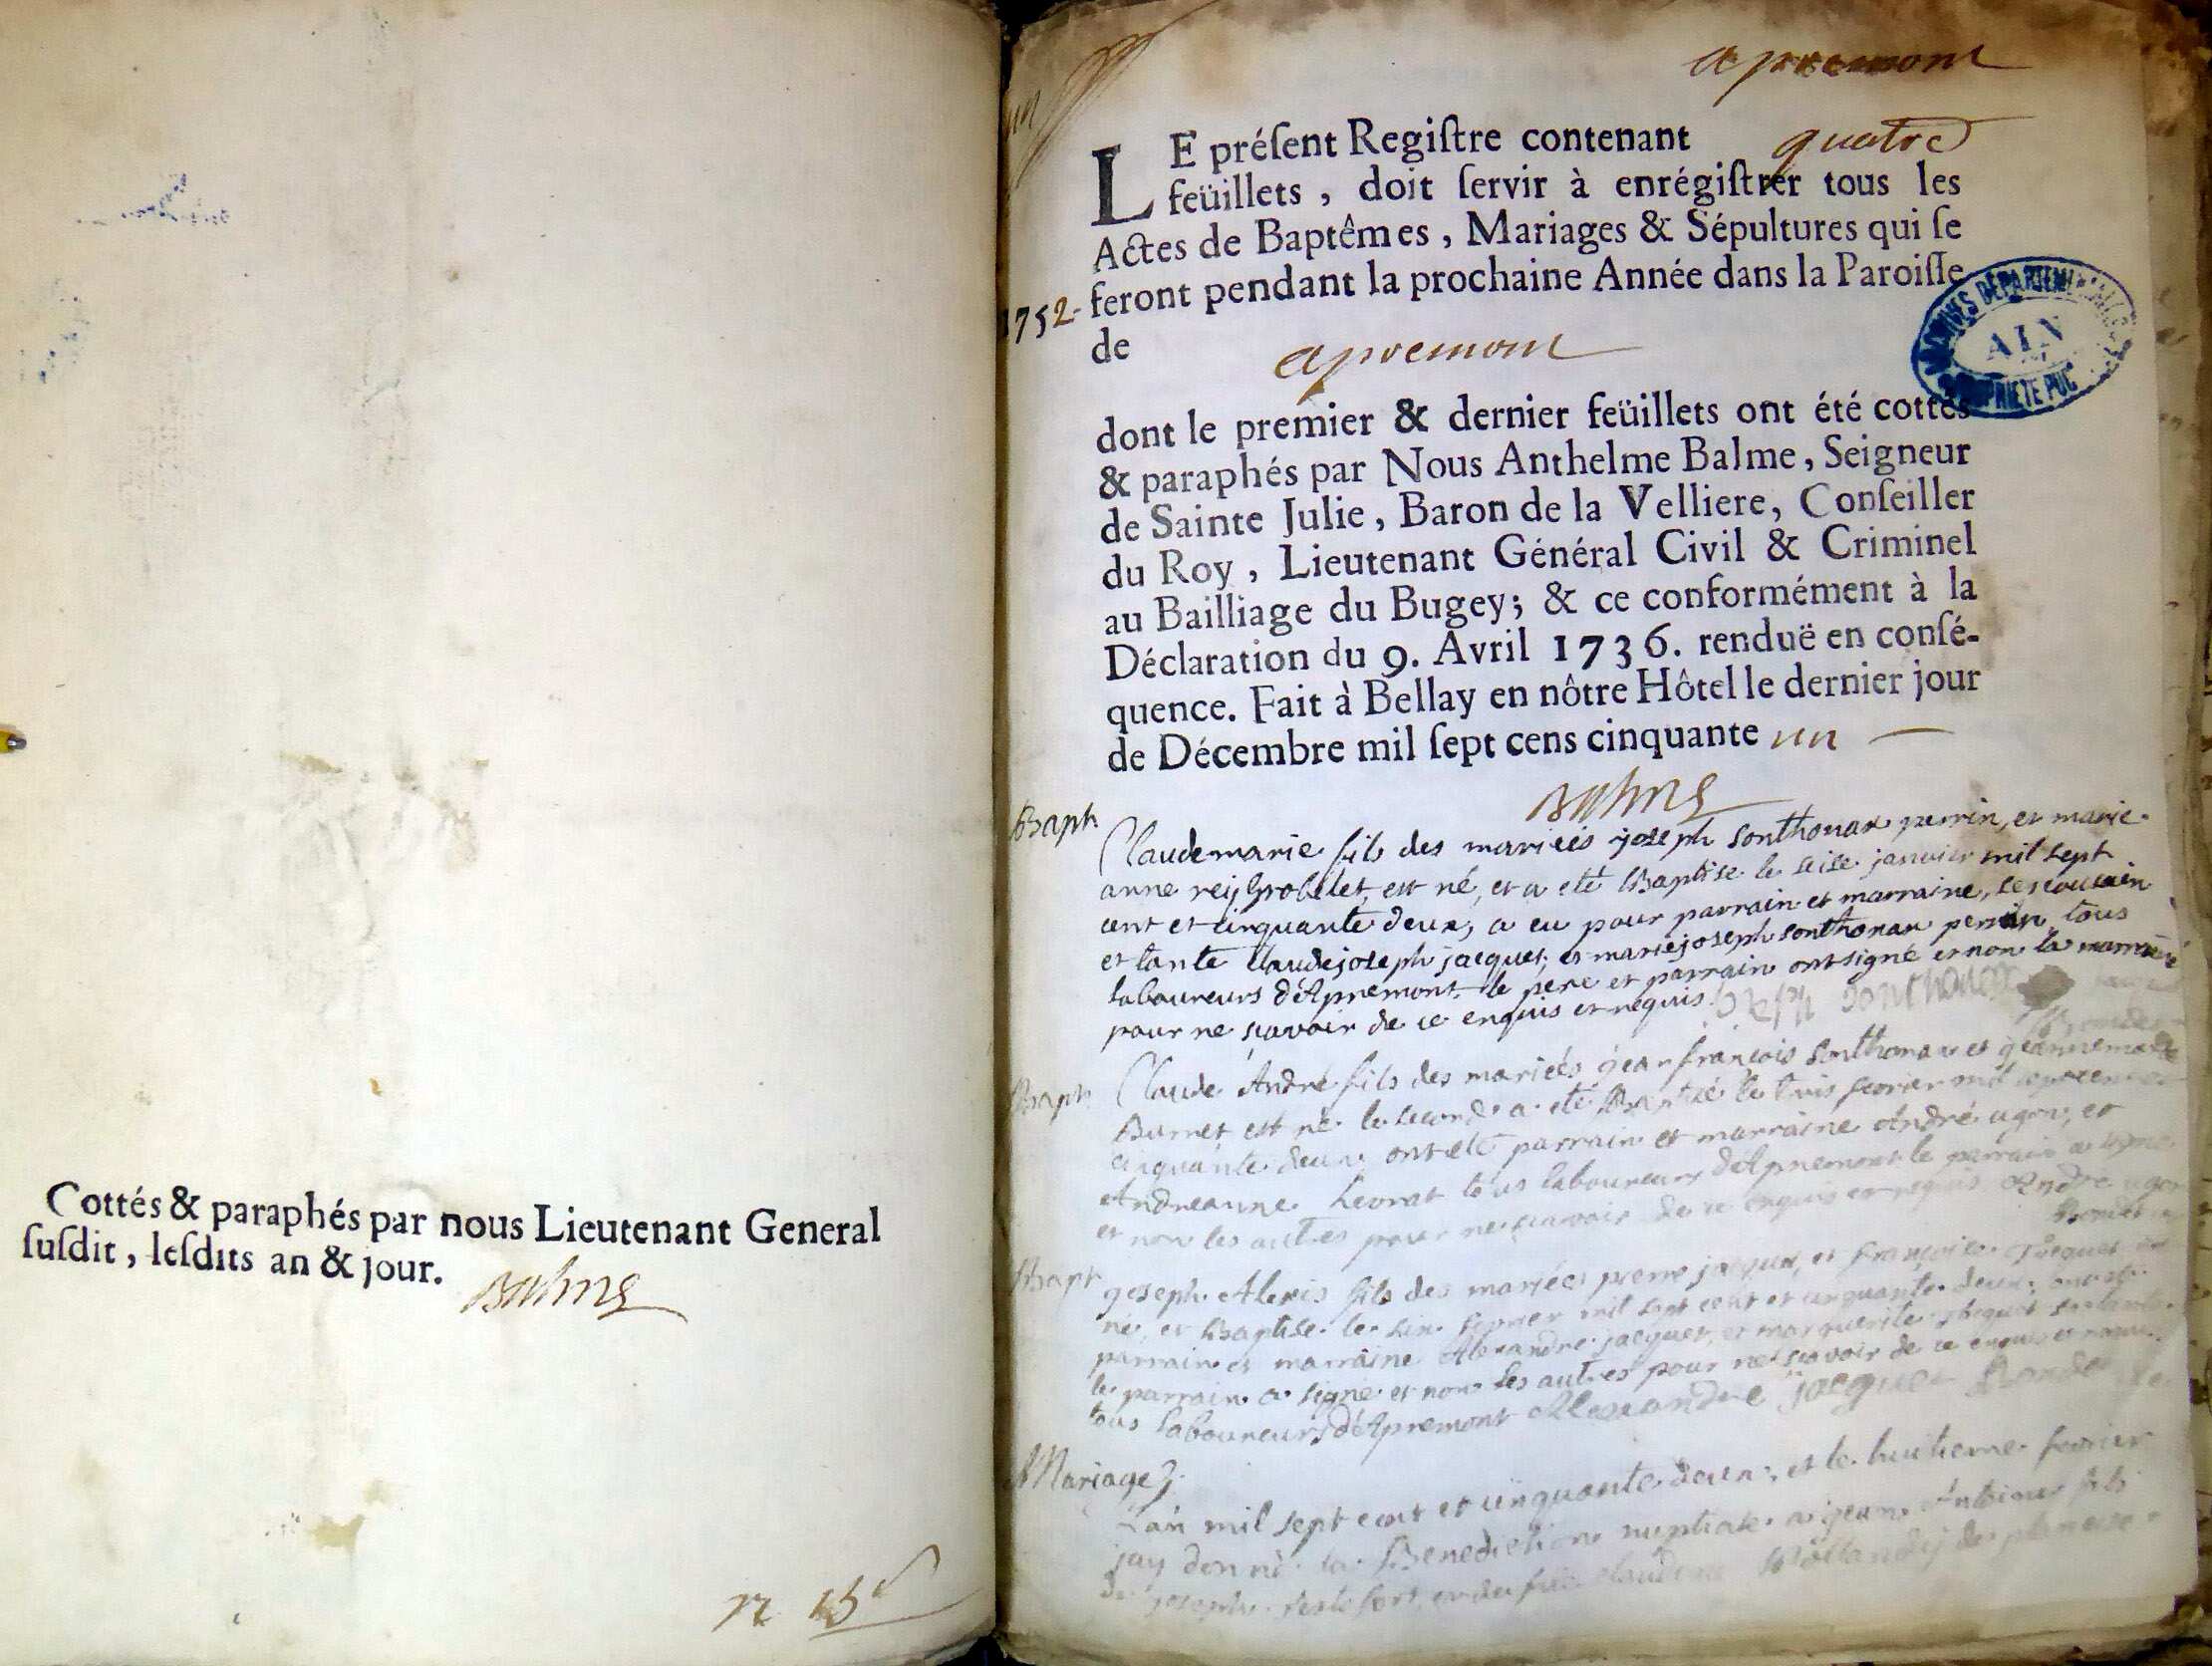 Cottés & paraphés par nous Lieutenant General
ſuſdit, leſdits an & jour.
Balme
apremont
un
LE préſent Regiſtre contenant quatre
feüillets, doit ſervir à enrégiſtrer tous les
Actes de Baptêmes, Mariages & Sépultures qui ſe
1752 - feront pendant la prochaine Année dans la Paroiſſe
de apremont
ARCHIVES DÉPARTEMENTALES
AIN
PROPRIETE PUC
dont le premier & dernier feüillets ont été cottés
& paraphés par Nous Anthelme Balme, Seigneur
de Sainte Julie, Baron de la Velliere, Conſeiller
du Roy, Lieutenant Général Civil & Criminel
au Bailliage du Bugey; & ce conformément à la
Déclaration du 9. Avril 1736. renduë en conſé-
quence. Fait à Bellay en nôtre Hôtel le dernier jour
de Décembre mil ſept cens cinquante un
Balme
Bapt.
Claude marie fils des mariéés joseph Sonthonax perrin, et marie
anne reygrobellet, est né, et a eté Baptise le seise janvier mil sept
cent et cinquante deux, a eu pour parrain et marraine, ses cousin
et tante claudejoseph jacquet, et mariejoseph sonthonax perrin tous
laboureurs d'Apremont le pere et parrain ont signé et non la marraine
pour ne scavoir de ce enquis et requis. joseph Sonthonax
Bapt.
Claude André fils des mariéés gean françois Sonthonax et geannemarie
Burnet est né le second a eté Baptisé le trois fevrier mil sept cent
cinquante deux ont eté parrain et marraine André ugon, et
Andreanne Levrat tous laboureurs d'Apremont le parrain a signé
et non les autres pour ne scavoir de ce enquis et requis André ugon
Bapt
joseph Alexis fils des mariéés pierre jacquet, et françoise jacquet est
né, et Baptise le six fevrier mil sept cent et cinquante deux,
parrain et marraine Alexandre jacquet, et marguerite jacquet sa tante
le parrain a signé et non les autres pour ne scavoir de ce enquis et requis
tous laboureurs d'Apremont Alexandre jacquet
Mariage
L'an mil sept cent et cinquante deux, et le huitieme fevrier
jay donné la Benediction nuptiale a gean Antoine fils
de joseph